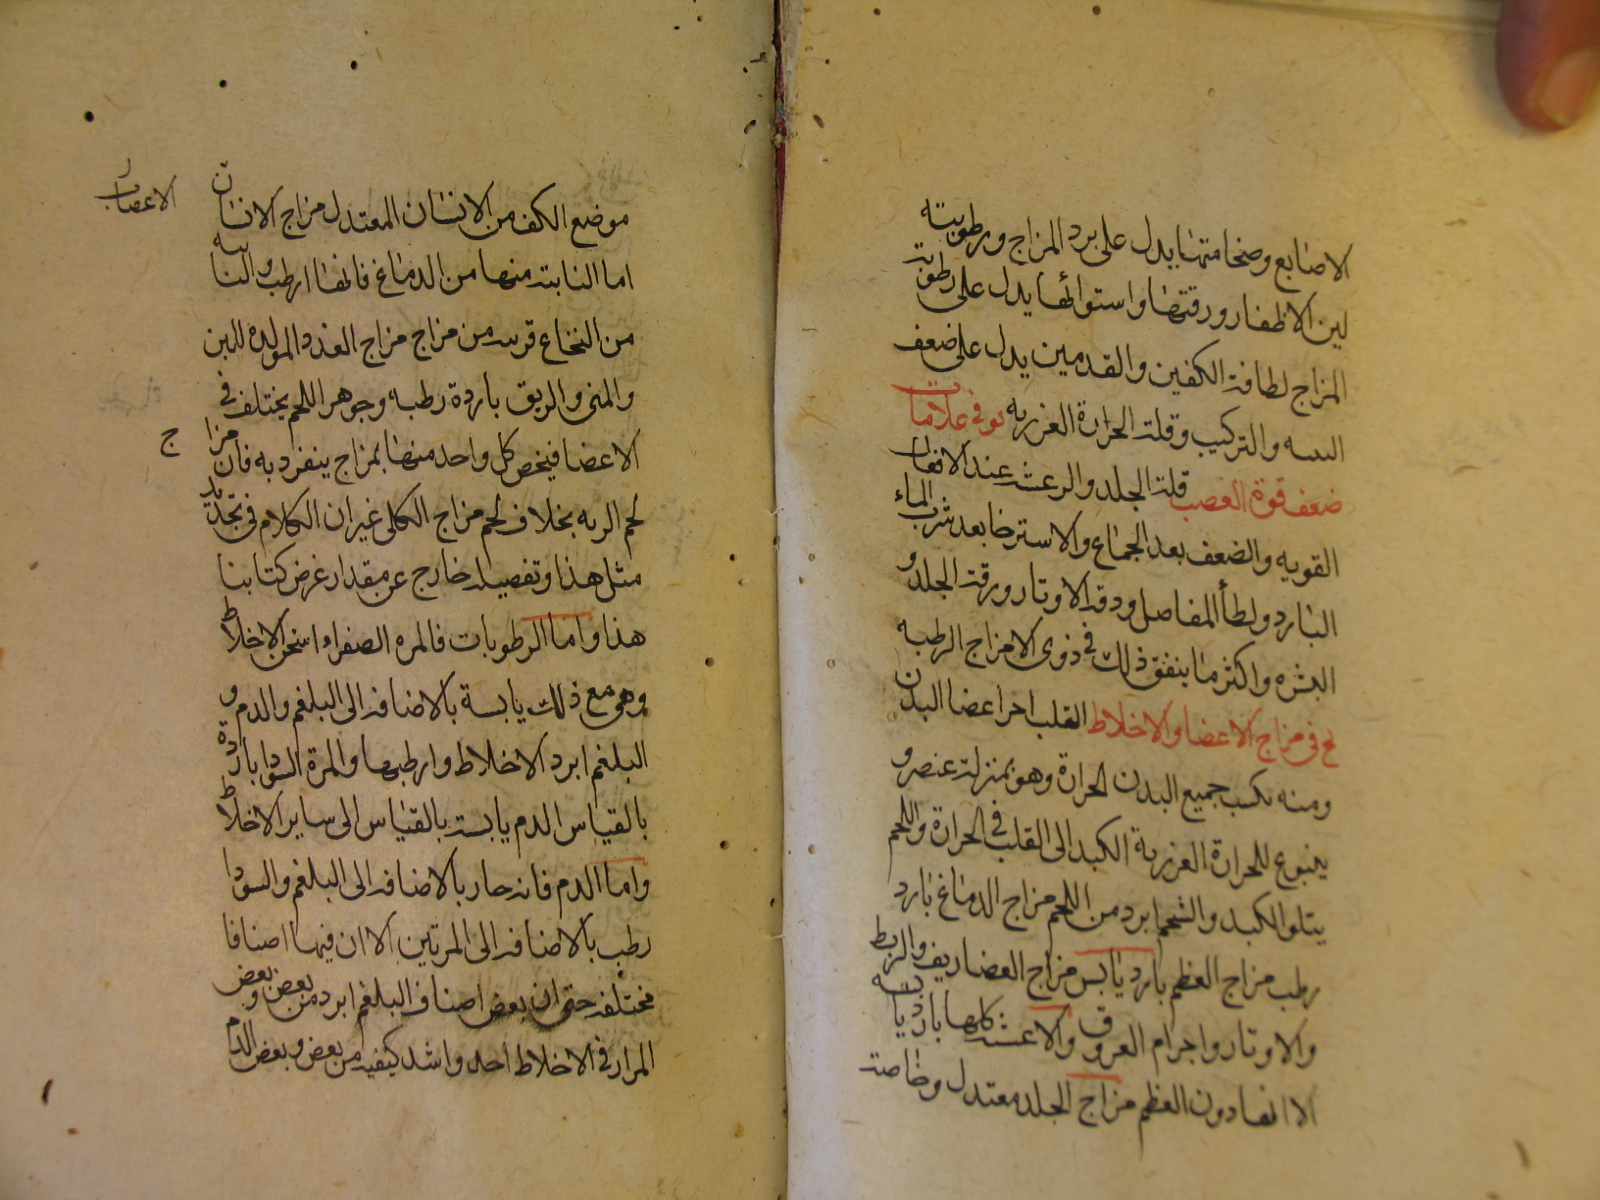 الاصابع وضخامتها يدل على برد المزاج ورطوبته
لين الاظفار ورقتها واستوائها يدل على رطوبة
المزاج لطافة الكفين والقدمين يدل على ضعف
البنيه والتركيب وقلة الحرارة الغريزيه نو في علامات
ضعف قوة العصب قلة الجلد والرعشة عند الافعال
القويه والضعف بعد الجماع والاسترخا بعد شرب الماء
البارد ولطأ المفاصل ودقة الاوتار ورقة الجلد و
البشره واكثر ما يتفق ذلك في ذوى الامزاج الرطبه
نح في مزاج الاعضا والاخلاط القلب احر اعضا البدن
ومنه يكسب جميع البدن الحرارة وهو بمنزلة عنصر و
ينبوع للحرارة الغريزية الكبد الى القلب في الحرارة واللحم
يتلوا الكبد والشحم ابرد من اللحم مزاج الدماغ بارد
رطب مزاج العظم بارد يابس مزاج الغضاريف والربط
والاوتار واجرام العروق والاغشية كلها بارد يابسه
الا انها دون العظم مزاج الجلد معتدل وخاصة
موضع الكف من الانسان المعتدل مزاج الانسان
الاعصاب
اما النابتة منها من الدماغ فانها ارطب والنابته
من النخاع قريبه من مزاج مزاج الغدد المولده للبن
والمنى والريق باردة رطبه وجوهر اللحم يختلف في
الاعضا فيخص كل واحد منها بمزاج ينفرد به فان مزاج
لحم الريه بخلاف لحم مزاج الكلى غير ان الكلام في تجديد
مثل هذا وتفصيله خارج عن مقدار غرض كتابنا
هذا واما الرطوبات فالمره الصفراء اسخن الاخلاط
وهي مع ذلك يابسة بالاضافة الى البلغم والدم و
البلغم ابرد الاخلاط وارطبها والمرة السودا باردة
بالقياس الدم يابسة بالقياس الى ساير الاخلاط
واما الدم فانه حار بالاضافة الى البلغم والسودا
رطب بالاضافة الى المرتين الا ان فيها اصنافا
مختلفة حتى ان بعض اصناف البلغم ابرد من بعض وبعض
المرار في الاخلاط احد واشد كيفية من بعض وبعض الدم